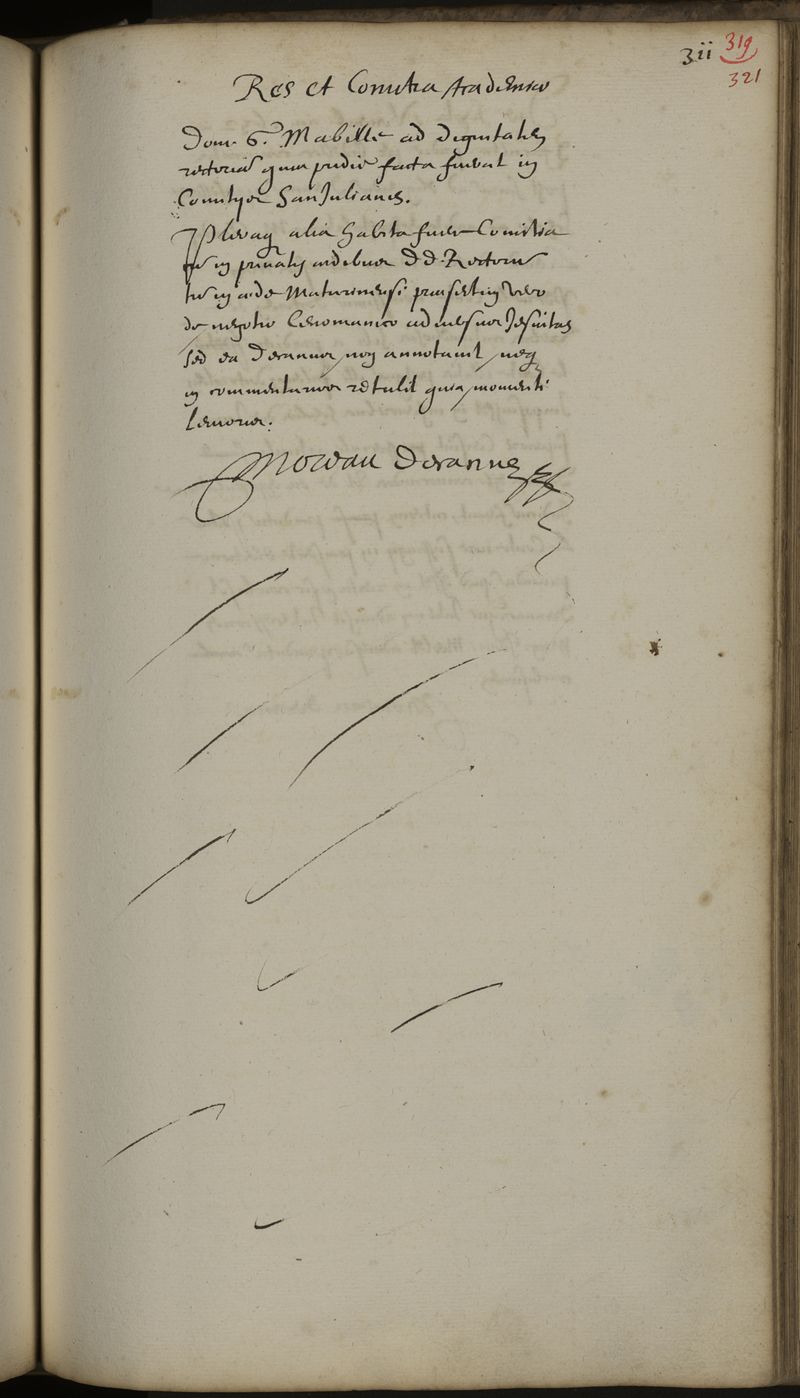 3ii 319
321
Res et Comitia
Dom. G. Mabille ad dignitatem
rectoria quae pridie facta fuerat in
Comitijs San Julianis.
Pleraq alia habita fuere Comitia
tu in privatis aedibus D D. Rectoris
tu in aede Maturinensi praesertim vero
de negotio Cenomanico adversus Jesuitas
sed ea Deranus non annotavit neq
in commentarios retulit quia momenti
levioris.
Moreau Deranus